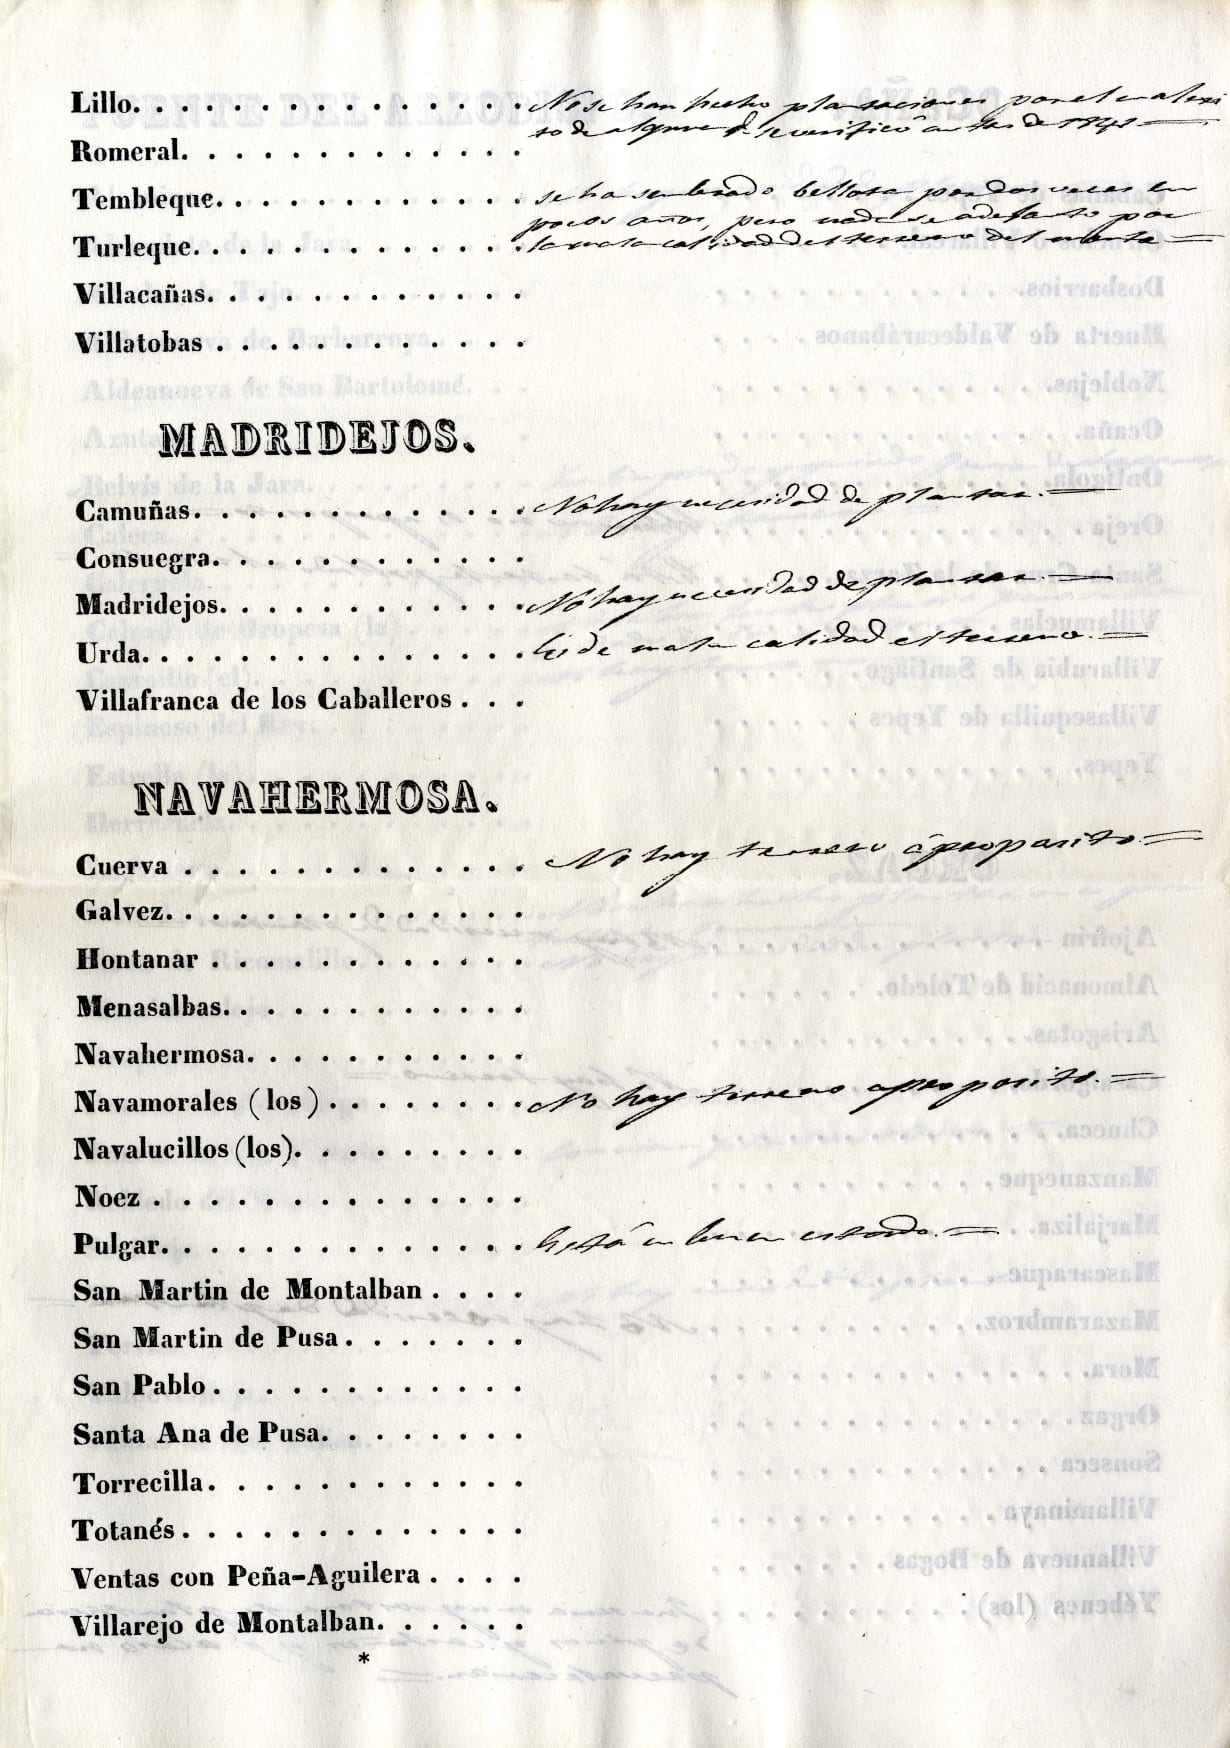 Lillo. . . . . . . . . . . . . . . No se han hecho plantaciones por el mal exi
to de alguna q.e se verificó antes de 1841
Romeral. . . . . . . . . . . . .
Tembleque. . . . . . . . . . . . se ha sembrado bellota por dos veces en
pocos años, pero nada se adelantó por
Turleque. . . . . . . . . . . . . la mala calidad del terreno del monte
Villacañas. . . . . . . . . . . .
Villatobas . . . . . . . . . . . .
MADRIDEJOS.
Camuñas. . . . . . . . . . . . . No hay necesidad de plantar.
Consuegra. . . . . . . . . . . .
Madridejos. . . . . . . . . . . . No hay necesidad de plantar.
Urda. . . . . . . . . . . . . . . Es de mala calidad el terreno.
Villafranca de los Caballeros . . .
NAVAHERMOSA.
Cuerva . . . . . . . . . . . . . No hay terreno á proposito.
Galvez. . . . . . . . . . . . . .
Hontanar . . . . . . . . . . . .
Menasalbas. . . . . . . . . . . .
Navahermosa. . . . . . . . . . .
Navamorales (los) . . . . . . . . No hay terreno aproposito.
Navalucillos (los). . . . . . . . .
Noez . . . . . . . . . . . . . .
Pulgar. . . . . . . . . . . . . . Está en buen estado.
San Martin de Montalban . . . .
San Martin de Pusa . . . . . . .
San Pablo . . . . . . . . . . . .
Santa Ana de Pusa. . . . . . . .
Torrecilla. . . . . . . . . . . .
Totanés . . . . . . . . . . . . .
Ventas con Peña-Aguilera . . . .
Villarejo de Montalban. . . . . .
*